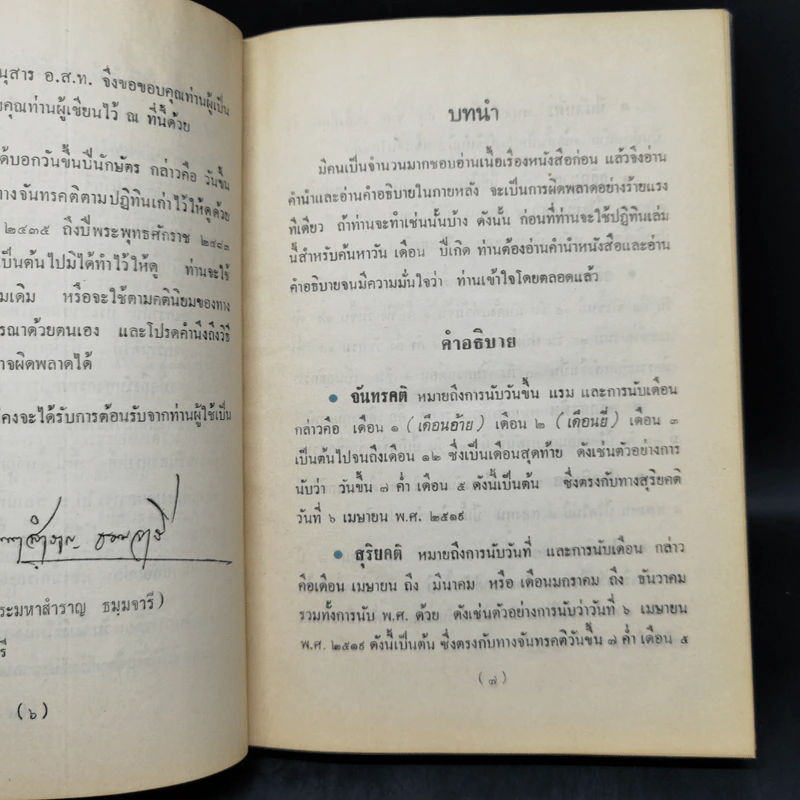 นุสาร อ.ส.ท. จึงขอขอบคุณท่านผู้เป็น
คุณท่านผู้เขียนไว้ ณ ที่นี้ด้วย
ด้บอกวันขึ้นปีนักษัตร กล่าวคือ วันขึ้น
ทางจันทรคติตามปฏิทินเก่าไว้ให้ดูด้วย
๒๔๓๕ ถึงปีพระพุทธศักราช
เป็นต้นไปมิได้ทำไว้ให้ดู ท่านจะใช้
มเดิม หรือจะใช้ตามคตินิยมของทาง
รณาด้วยตนเอง และโปรดคำนึงถึงวิธี
าจผิดพลาดได้
คงจะได้รับการต้อนรับจากท่านผู้ใช้เป็น
ระมหาสำราญ ธมฺมจารี)
รี
(๖)
บทนำ
มีคนเป็นจำนวนมากชอบอ่านเนื้อเรื่องหนังสือก่อน แล้วจึงอ่าน
คำนำและอ่านคำอธิบายในภายหลัง จะเป็นการผิดพลาดอย่างร้ายแรง
ทีเดียว ถ้าท่านจะทำเช่นนั้นบ้าง ดังนั้น ก่อนที่ท่านจะใช้ปฏิทินเล่ม
นี้สำหรับค้นหาวัน เดือน ปีเกิด ท่านต้องอ่านคำนำหนังสือและอ่าน
คำอธิบายจนมีความมั่นใจว่า ท่านเข้าใจโดยตลอดแล้ว
คำอธิบาย
● จันทรคติ หมายถึงการนับวันขึ้น แรม และการนับเดือน
กล่าวคือ เดือน ๑ (เดือนอ้าย) เดือน ๒ (เดือนยี่) เดือน ๓
เป็นต้นไปจนถึงเดือน ๑๒ ซึ่งเป็นเดือนสุดท้าย ดังเช่นตัวอย่างการ
นับว่า วันขึ้น ๗ ค่ำ เดือน ๕ ดังนี้เป็นต้น ซึ่งตรงกับทางสุริยคติ
วันที่ ๖ เมษายน พ.ศ. ๒๕๑๙
● สุริยคติ หมายถึงการนับวันที่ และการนับเดือน กล่าว
คือเดือน เมษายน ถึง มีนาคม หรือ เดือนมกราคม ถึง ธันวาคม
รวมทั้งการนับ พ.ศ. ด้วย ดังเช่นตัวอย่างการนับว่าวันที่ ๖ เมษายน
พ.ศ. ๒๕๑๙ ดังนี้เป็นต้น ซึ่งตรงกับทางจันทรคติวันขึ้น ๗ ค่ำ เดือน ๕
(๗)